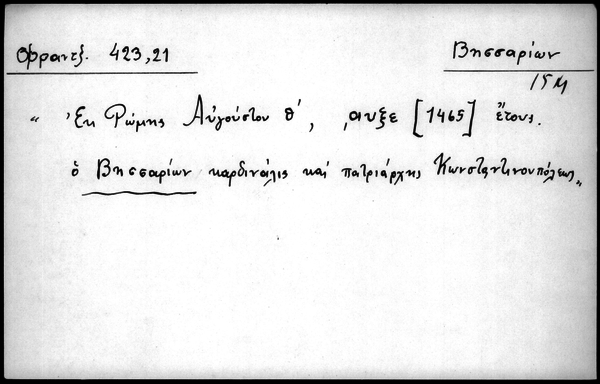 Φραντζ. 423,21
Βησσαρίων
15 Μ
“ Ἐκ Ρώμης Αὐγούστου θ', ͵αυξε [1465] ἔτους.
ὁ Βησσαρίων καρδινάλις καὶ πατριάρχης Κωνσταντινουπόλεως „